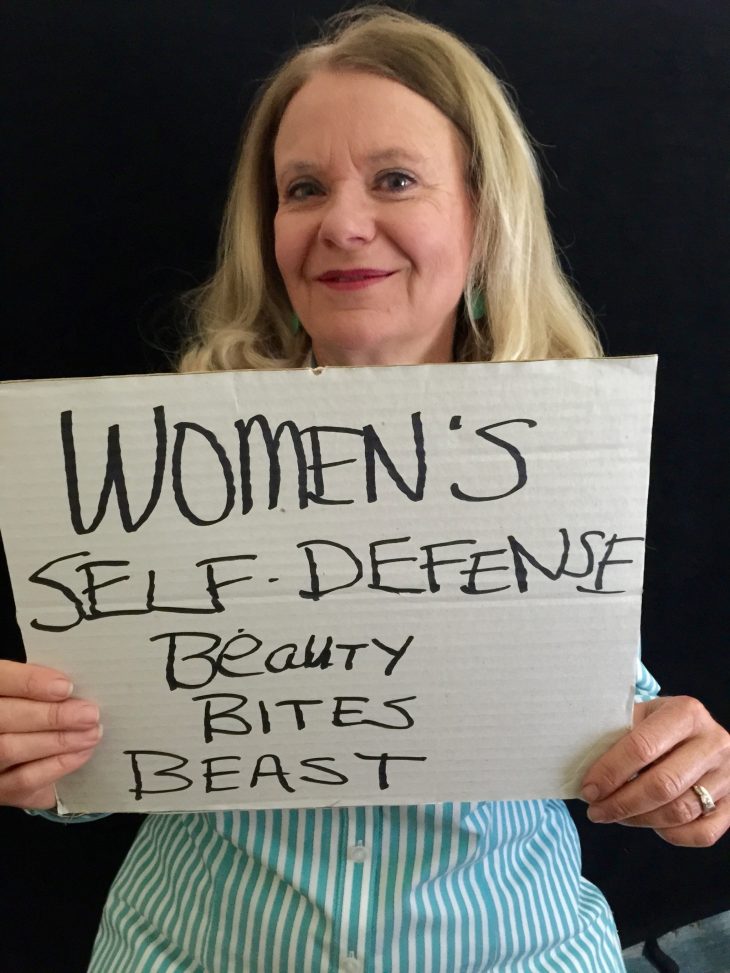 WOMEN'S
SELF-DEFENSE
BeauTY
BITES
BEAST